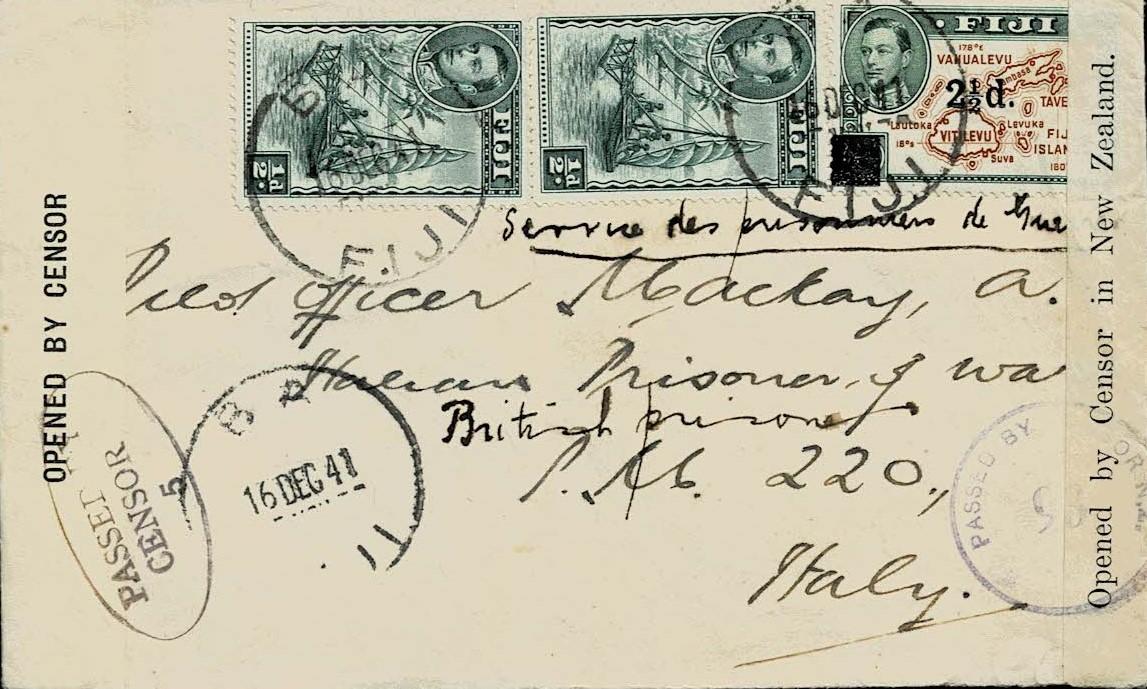 FIJI
½d.
FIJI
½d.
FIJI
178°E
VANUALEVU
2½d.
TAVE
Lautoka
Levuka
18°S
VITILEVU
FIJ
ISLAN
Suva
180
FIJI
16 DEC 41
FIJI
Service des prisonniers de Gue
Pilot Officer Mackay, A.
Italian Prisoner of wa
British prisoner
P.M. 220,
Italy.
OPENED BY CENSOR
PASSED
CENSOR
5
BA
16 DEC 41
JI
PASSED BY
Opened by Censor in New Zealand.